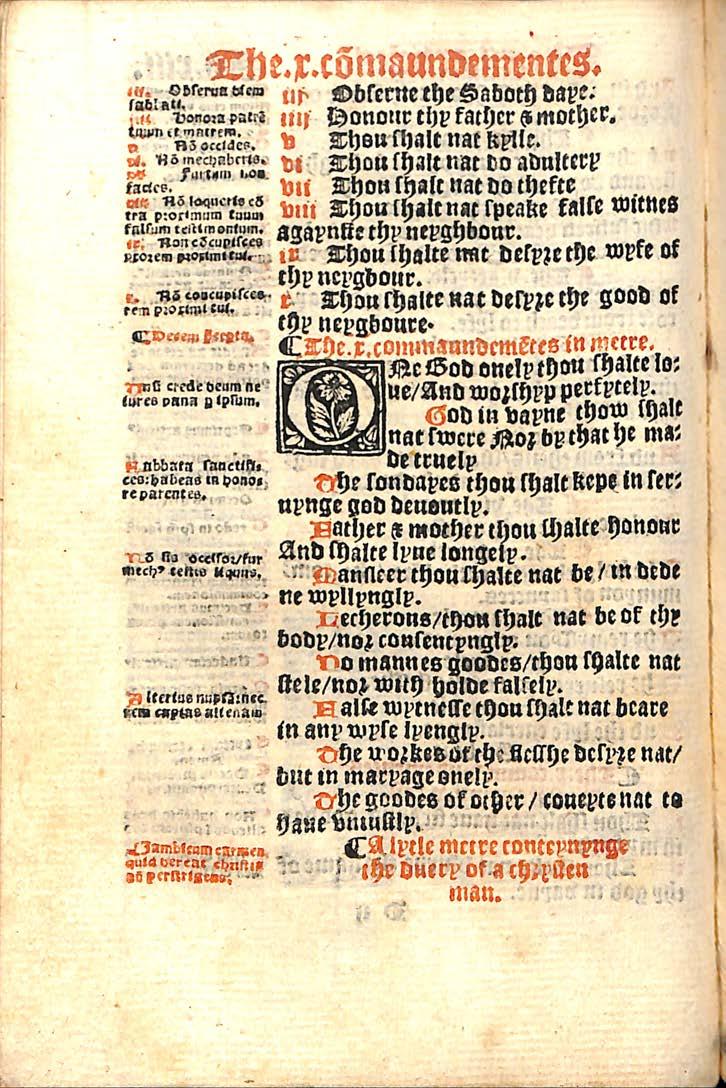 The.x.cõmaundementes.
iij Obserue the Saboth daye.
iiij Honour thy father & mother.
v Thou shalt nat kylle.
vi Thou shalt nat do adultery
vii Thou shalt nat do thefte
viii Thou shalt nat speake false witnes
agaynste thy neyghbour.
ix Thou shalte nat desyre the wyfe of
thy neygbour.
x Thou shalte nat desyre the good of
thy neygboure.
¶The.x.commaundemẽtes in metre.
ONe God onely thou shalte lo:
ue/And worshyp perfytely.
God in vayne thow shalt
nat swere Nor by that he ma:
de truely
The sondayes thou shalt kepe in ser:
uynge god deuoutly.
Father & mother thou shalte honour
And shalte lyue longely.
Mansleer thou shalte nat be / in dede
ne wyllyngly.
Lecherous/thou shalt nat be of thy
body/nor consentyngly.
No mannes goodes/thou shalte nat
stele/nor with holde falsely.
False wytnesse thou shalt nat beare
in any wyse lyengly.
The workes of the flesshe desyre nat/
but in maryage onely.
The goodes of other / coueyte nat to
haue vniustly.
¶A lytle metre conteynynge
the duety of a chrysten
man.
iij. Obserua diem
sabbati.
iiij. Honora patrẽ
tuum et matrem.
v Nõ occides.
vi. Nõ mechaberis.
vij Furtum non
facies.
viij Nõ loqueris cõ
tra proximum tuum
falsum testimonium.
ix. Non cõcupisces
vxorem proximi tui.
x. Nõ concupisces
rem proximi tui.
¶Decem
crede deum ne
iures vana p ipsum.
Sabbata sanctifi:
ces: habeas in honor
re parentes.
Nõ sis occisor/fur
mech⁹ testis iniquus.
Alterius nuptã: nec
rem cupias alienam
¶Iambicum carmen